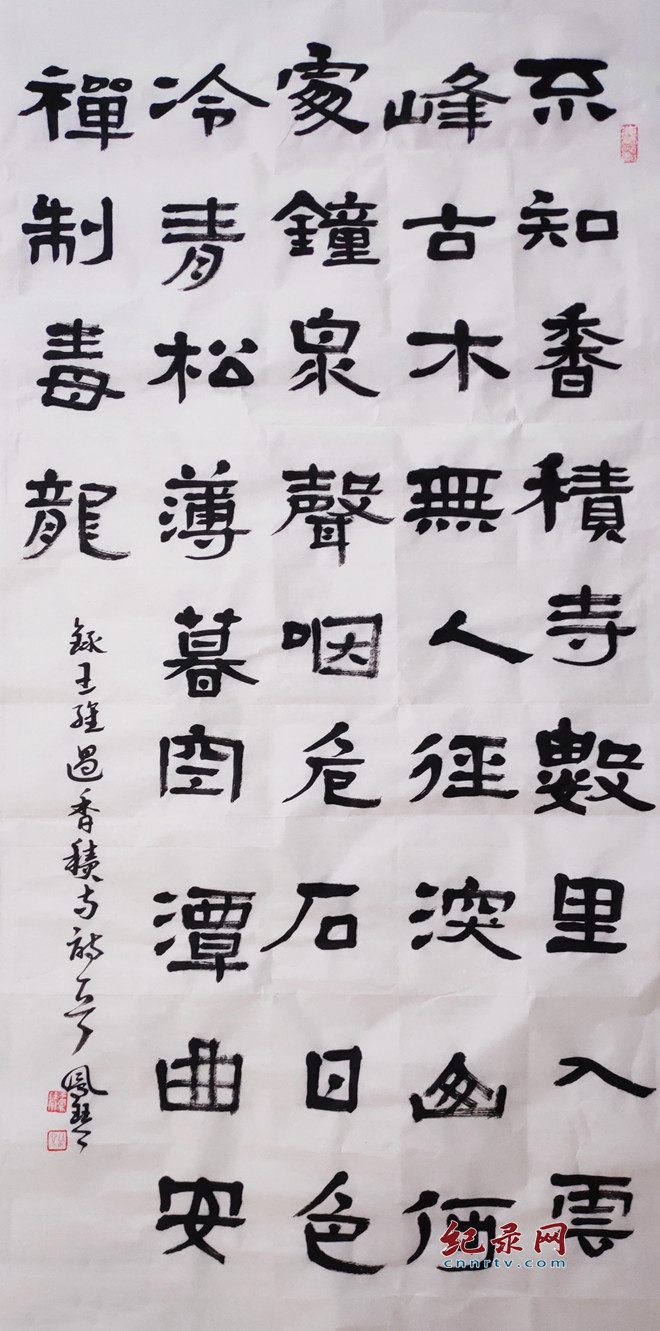 不知香積寺數里入雲
峰古木無人徑深山何
處鐘泉聲咽危石日色
冷青松薄暮空潭曲安
禪制毒龍
錄王維過香積寺詩一首 鳳
纪录网
cnnrtv.com